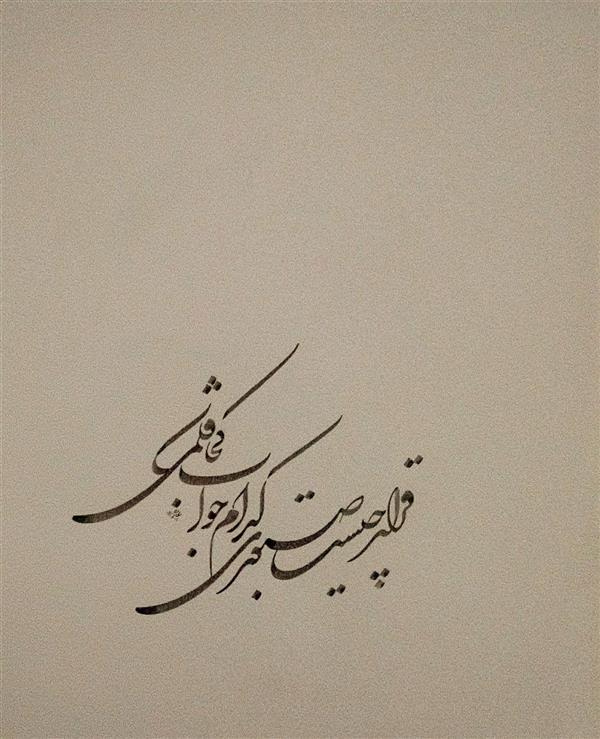 قرار چیست صبوری کدام خواب کجا